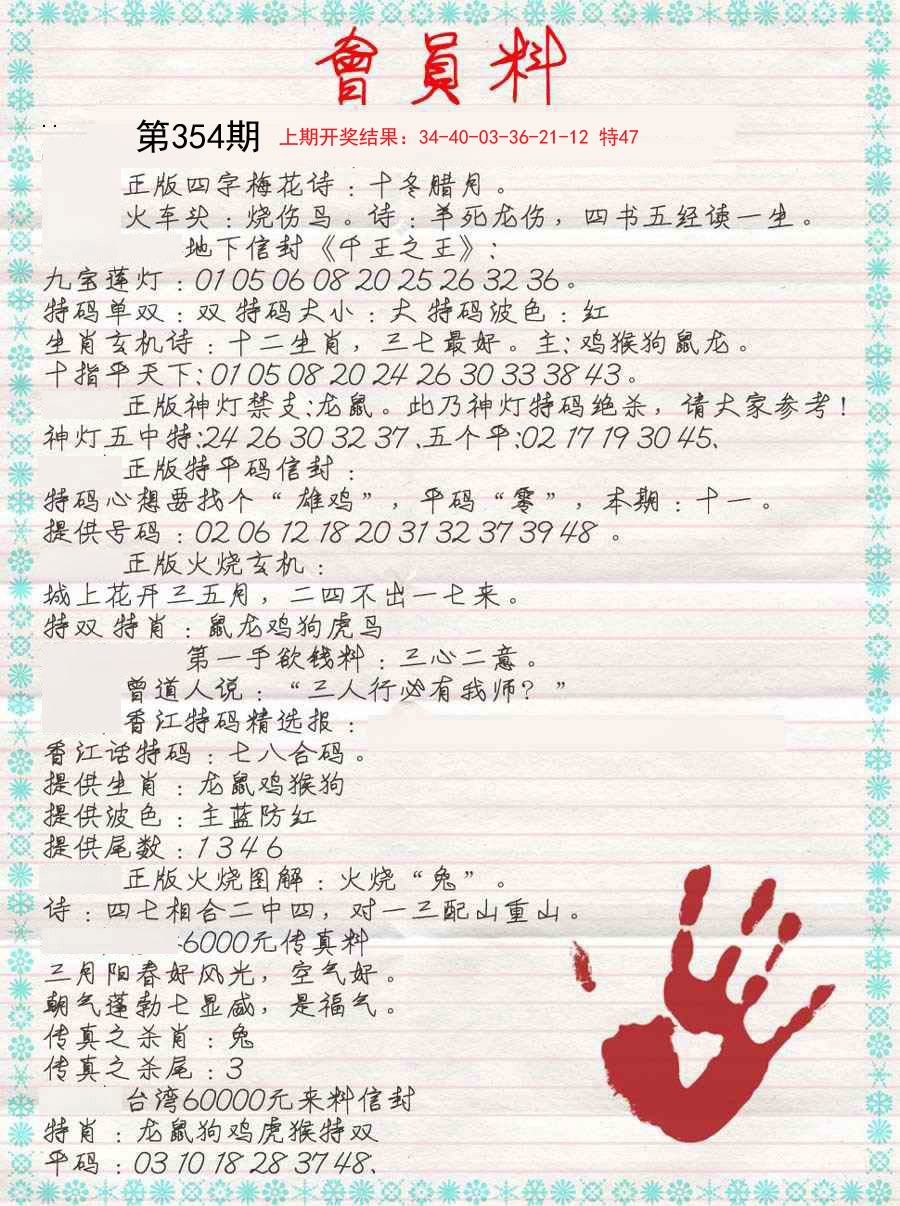 會員料
第354期 上期开奖结果：34-40-03-36-21-12 特47
正版四字梅花诗：十冬腊月。
火车头：烧伤鸟。诗：羊死龙伤，四书五经读一生。
地下信封《千王之王》：
九宝莲灯：01 05 06 08 20 25 26 32 36。
特码单双：双 特码大小：大 特码波色：红
生肖玄机诗：十二生肖，三七最好。主：鸡猴狗鼠龙。
十指平天下：01 05 08 20 24 26 30 33 38 43。
正版神灯禁支：龙鼠。此乃神灯特码绝杀，请大家参考！
神灯五中特：24 26 30 32 37、五个平：02 17 19 30 45、
正版特平码信封：
特码心想要找个“雄鸡”，平码“零”，本期：十一。
提供号码：02 06 12 18 20 31 32 37 39 48 。
正版火烧玄机：
城上花开三五月，二四不出一七来。
特双 特肖：鼠龙鸡狗虎鸟
第一手欲钱料：三心二意。
曾道人说：“三人行必有我师？”
香江特码精选报：
香江话特码：七八合码。
提供生肖：龙鼠鸡猴狗
提供波色：主蓝防红
提供尾数：1 3 4 6
正版火烧图解：火烧“兔”。
诗：四七相合二中四，对一三配山重山。
6000元传真料
三月阳春好风光，空气好。
朝气蓬勃七显威，是福气。
传真之杀肖：兔
传真之杀尾：3
台湾60000元来料信封
特肖：龙鼠狗鸡虎猴特双
平码：03 10 18 28 37 48、